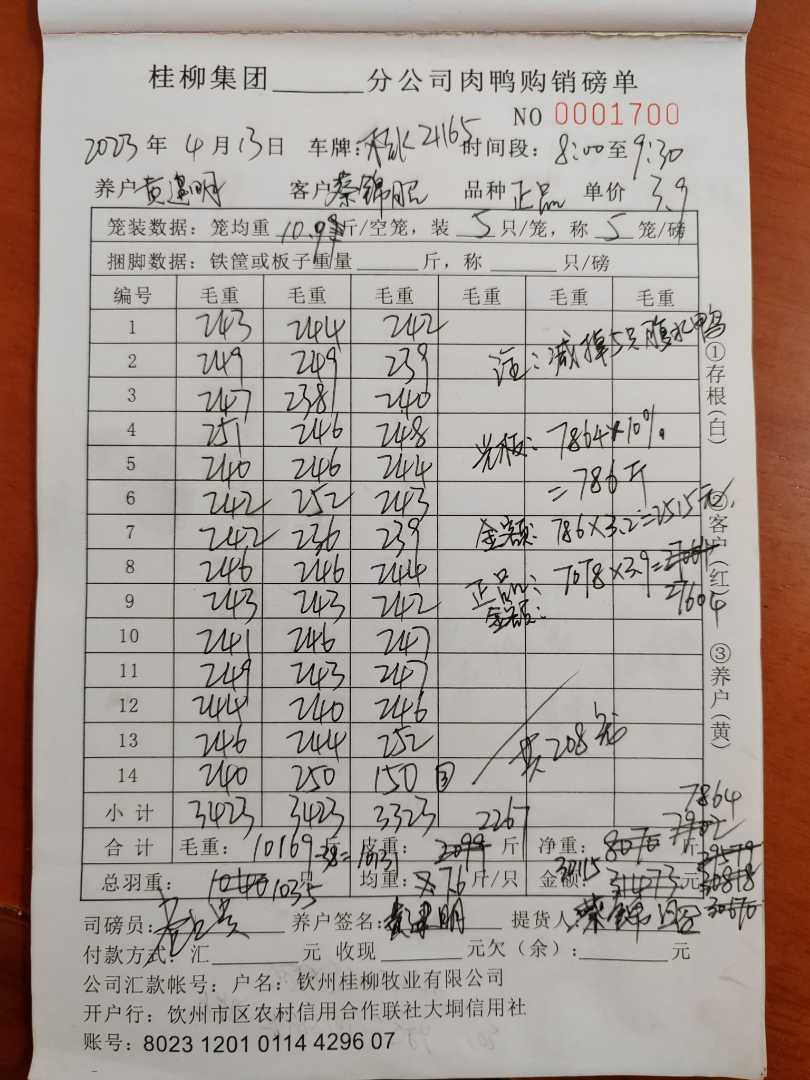 桂柳集团______分公司肉鸭购销磅单
NO 0001700
2023年 4月13日 车牌: 21165 时间段: 8:00至9:30
养户 黄建明 客户 蔡锦昭 品种 正品 单价 3.9
笼装数据: 笼均重 斤/空笼, 装 5 只/笼, 称 5 笼/磅
捆脚数据: 铁筐或板子重量______斤, 称______只/磅
编号 毛重 毛重 毛重 毛重 毛重 毛重
1 243 244 242
2 249 249 239
注: 减掉5只腹水鸭
3 247 238 240
4 251 246 248
光板: 7864×10%
5 240 246 244
=786斤
6 242 252 243
7 242 236 239
金额: 786×3.2=2515元
8 246 246 244
正品: 7078×3.9=
9 243 243 242
金额: 27604
10 241 246 247
11 249 243 247
12 244 240 246
13 246 244 252
共208笼
14 240 250 150 ③
小计 3423 3423 3323 2267
7864
合计 毛重: 10169 斤 皮重: 2099 斤 净重: 8070 斤
总羽重: 1035 只 均重: 76 斤/只 金额: 31473 元
30115
司磅员: 养户签名: 黄建明 提货人: 蔡锦昭
付款方式: 汇______元 收现______元欠(余): ______元
公司汇款帐号: 户名: 钦州桂柳牧业有限公司
开户行: 饮州市区农村信用合作联社大垌信用社
账号: 8023 1201 0114 4296 07
①存根(白) ②客户(红) ③养户(黄)